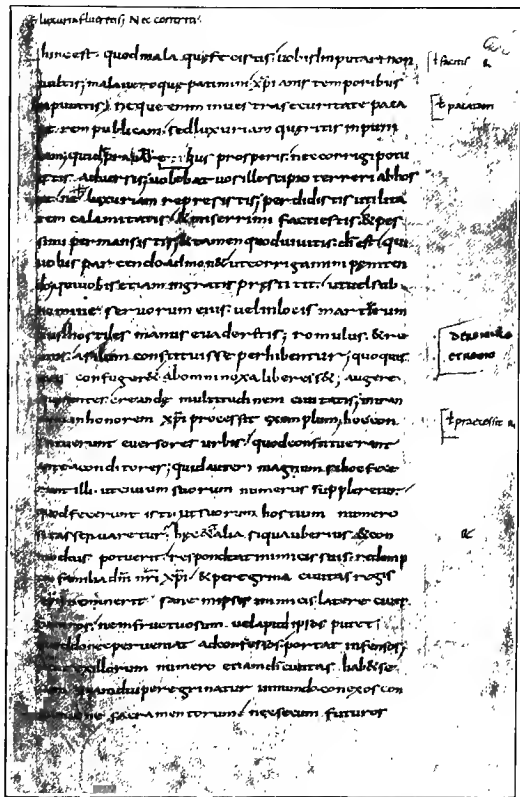 luxuria flueretis; Nec contriti
hinc est quod mala quę fecistis; uobis Imputari non
uultis; mala uero quę patimini xp̄i anis temporibus
Inputatis; neque enim inuestra securitate paca
rem publicam; sed luxuriam quęritis inpuni
tam; bus prosperis; nec corrigi potu
istis aduersis; uolebat uos ille scipio terreri ab hos
luxuriam repressistis; perdidistis utilita
tem calamitatis; & miserrimi facti estis; & pes
simi permansistis; & tamen quod uiuitis; dī est; qui
uobis parcendo admon& ut corrigamini pęniten
do; qui uobis etiam ingratis pręstitit; ut uel sub
nomine seruorum eius uel in locis martyrum
eius hostiles manus euaderetis; romulus & re
mus asilum constituisse perhibentur; quo quis
confuger& ab omni noxa liber ess&; augere
creandę multitudinem ciuitatis; miran
dum in honorem xp̄i processit exemplum; hoc con
stituerunt euersores urbis; quod constituerant
ante conditores; quid autem magnum si hoc fece
runt illi. ut ciuium suorum numerus suppleretur.
quod fecerunt isti; ut suorum hostium numero
sitas seruaretur; hęc & alia si qua uberius & con
modius potuerit; respondeat inimicis suis; redemp
ta familia dn̄i nr̄i xp̄i & peregrina ciuitas regis
xp̄i meminerit sane in ipsis inimicis latere ciues
futuros; ne infructuosum uel apud ipsos putet;
quod donec perueniat ad confessos; portat infensos;
sicut ex illorum numero etiam dī ciuitas hab& se
cum quamdiu peregrinatur in mundo conexos con
munione sacramentorum; nec secum futuros
ł facitis R
ł pacatam
De romulo
et remo
ł praecessit R